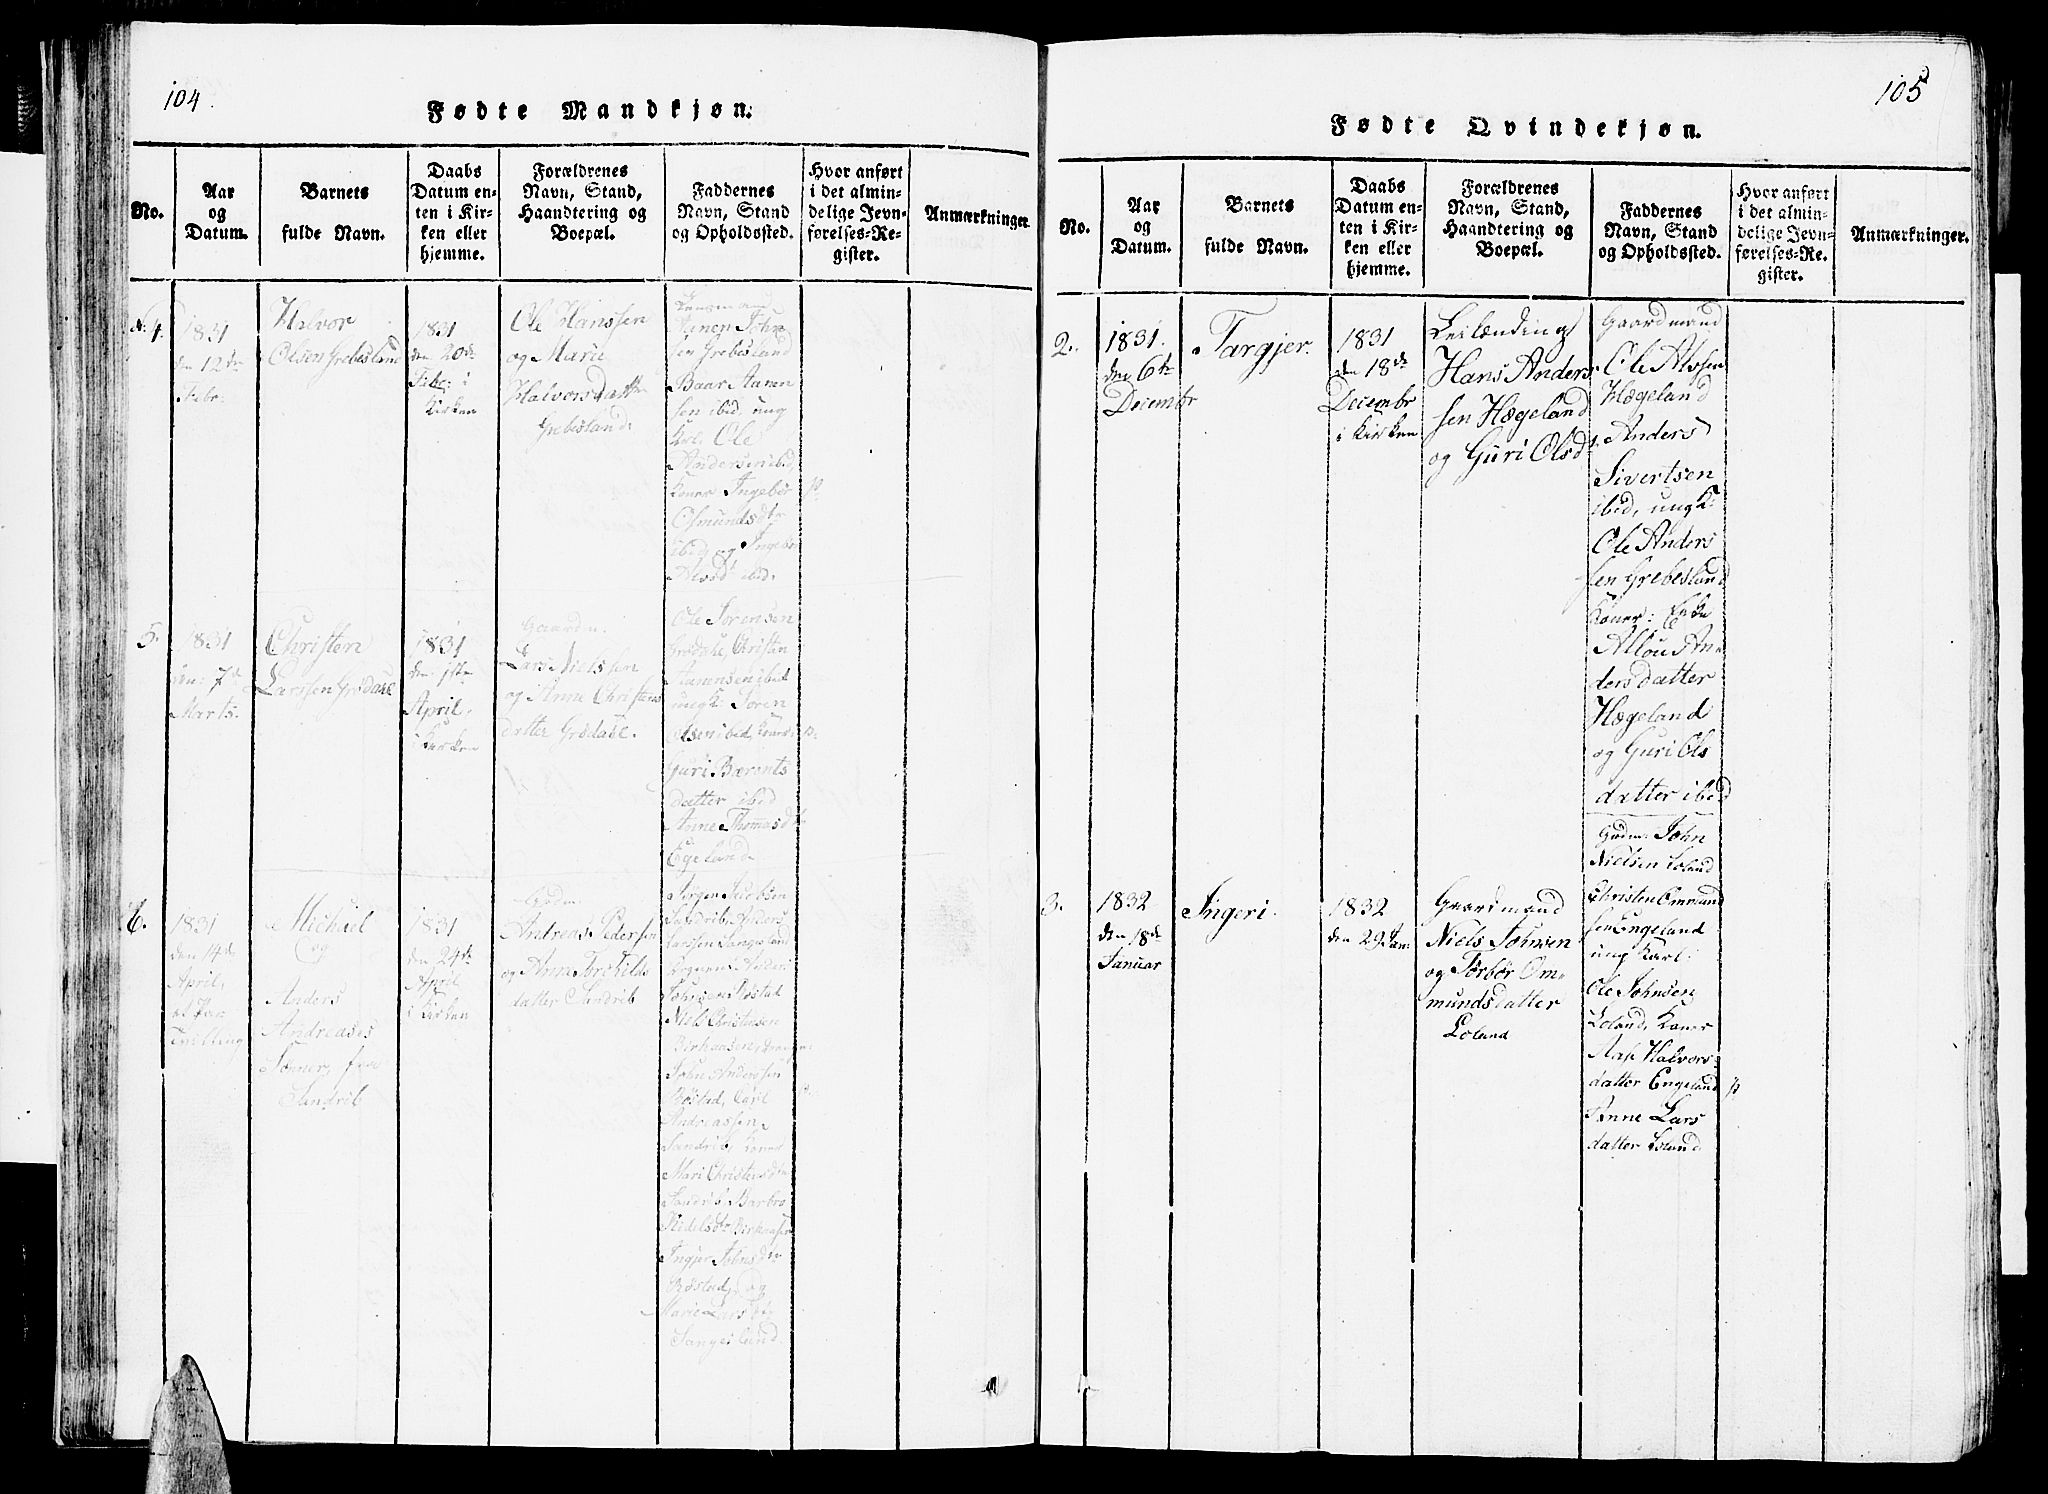 104.
Fødte Mandkjøn.
No.
Aar
og
Datum.
Barnets
fulde Navn.
Daabs
Datum en-
ten i Kir-
ken eller
hjemme.
Forældrenes
Navn, Stand,
Haandtering og
Boepæl.
Faddernes
Navn, Stand
og Opholdssted.
Hvor anført
i det almin-
delige Jevn-
førelses-Re-
gister.
Anmærkninger.
4.
1831
den 12te
Febr.
Halvor
Olsen Grebesland
1831
den 20de
Febr: i
Kirken
Ole Hanssen
og Marie
Halvorsdatter
Grebesland.
Lensmand
Aanen John
sen Grebesland
Baar Aanen
sen ibid, ung
Karl, Ole
Andersen ibid,
Koner Ingebor
Osmundsdtr
ibid, og Ingebor
ibid.
5.
1831
den 7de
Marts.
Christen
Larssen Grødale
1831
den 1ste
April.
i Kirken
Gaardm.
Lars Nielssen
og Anne Christens
datter Grødale.
Ole Sørensen
Grødale, Christen
Aanensen ibid
ungk: Søren
Olsen ibid, Koner:
Guri Bærents
datter ibid
Anne Thomasd
Egeland
6.
1831
den 14de
April,
et Par
Tvilling
Michael
og
Anders
Andreases
Sønner, fra
Sandrib
1831
den 24de
April
i Kirken
Gadm.
Andreas Pedersen
og Anne Torchilds
datter Sandrib
Jørgen Jacobsen
Sandrib, Anders
Larssen Sangesland
Johnsen Røstad
Niels Christensen
Birkaasen, Drengen
John Anderssen
Røstad, Carl
Andreassen
Sandrib, Koner
Mari Christensdtr
Sandrib, Barbro
Birkaasen
Ingjer Johnsdtr
Røstad, og
Marie Larsdtr
Sangesland.
105
Fødte Qvindekjøn.
No.
Aar
og
Datum.
Barnets
fulde Navn.
Daabs
Datum en-
ten i Kir-
ken eller
hjemme.
Forældrenes
Navn, Stand,
Haandtering og
Boepæl.
Faddernes
Navn, Stand
og Opholdssted.
Hvor anført
i det almin-
delige Jevn-
førelses-Re-
gister.
Anmærkninger.
2.
1831.
den 6te
Decembr
Targjer.
1831
den 18de
Decembr
i Kirken
Leilænding
Hans Anders
sen Hægeland
og Guri Olsd.
Gaardmand
Ole Alssen
Hægeland
Anders
Sivertsen
ibid, ungK:
Ole Anders
sen Grebesland
Koner: Enke
Allou An-
dersdatter
Hægeland
og Guri Ols
datter ibid
3.
1832
den 18de
Januar
Ingeri.
1832
den 29 Jan:
Gaardmand
Niels Johnsen
og Torbor Om-
mundsdatter
Loland
Gadm: John
Nielsen Loland
Christen Ommund
sen Engeland
ung Karl:
Ole Johnsen
Loland, Koner
Halvors
datter Engeland
Anne Lars
datter Loland